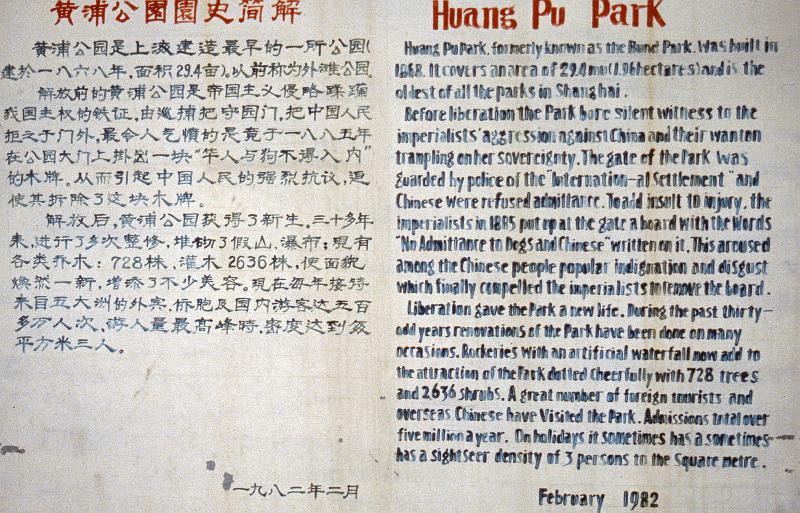 黄浦公園園史简解
黄浦公园是上海建造最早的一所公园(
建於一八六八年,面积29.4亩)。以前称为外滩公园。
解放前的黄浦公园是帝国主义侵略蹂躏
我国主权的铁证,由巡捕把守园门,把中国人民
拒之于门外,最令人气愤的是竟于一八八五年
在公园大门上掛出一块“华人与狗不得入内”
的木牌。从而引起中国人民的强烈抗议,迫
使其拆除了这块木牌。
解放后,黄浦公园获得了新生。三十多年
来,进行了多次整修,堆砌了假山、瀑布;現有
各类乔木:728株,灌木2636株,使面貌
焕然一新,增添了不少美容。現在每年接待
来自五大洲的外宾,桥胞及国内游客达五百
多万人次,游人量最高峰時,密度达到每
平方米三人。
一九八二年二月
Huang Pu Park
Huang Pu Park, formerly known as the Bund Park. Was built in
1868. It covers an area of 29.4 mu (1.96 hectares) and is the
oldest of all the parks in Shanghai.
Before liberation the Park bore silent witness to the
imperialists' aggression against China and their wanton
trampling on her sovereignty. The gate of the Park was
guarded by police of the "Internation-al Settlement" and
Chinese were refused admittance. To add insult to injury, the
imperialists in 1885 put up at the gate a board with the Words
"No Admittance to Dogs and Chinese" written on it. This aroused
among the Chinese people popular indignation and disgust
which finally compelled the imperialists to remove the board.
Liberation gave the Park a new life. During the past thirty-
odd years renovations of the Park have been done on many
occasions. Rockeries with an artificial waterfall now add to
the attraction of the Park dotted Cheerfully with 728 trees
and 2636 shrubs. A great number of foreign tourists and
overseas Chinese have Visited the Park. Admissions total over
five million a year. On holidays it sometimes has a sometimes
has a sightseer density of 3 persons to the Square metre.
February 1982